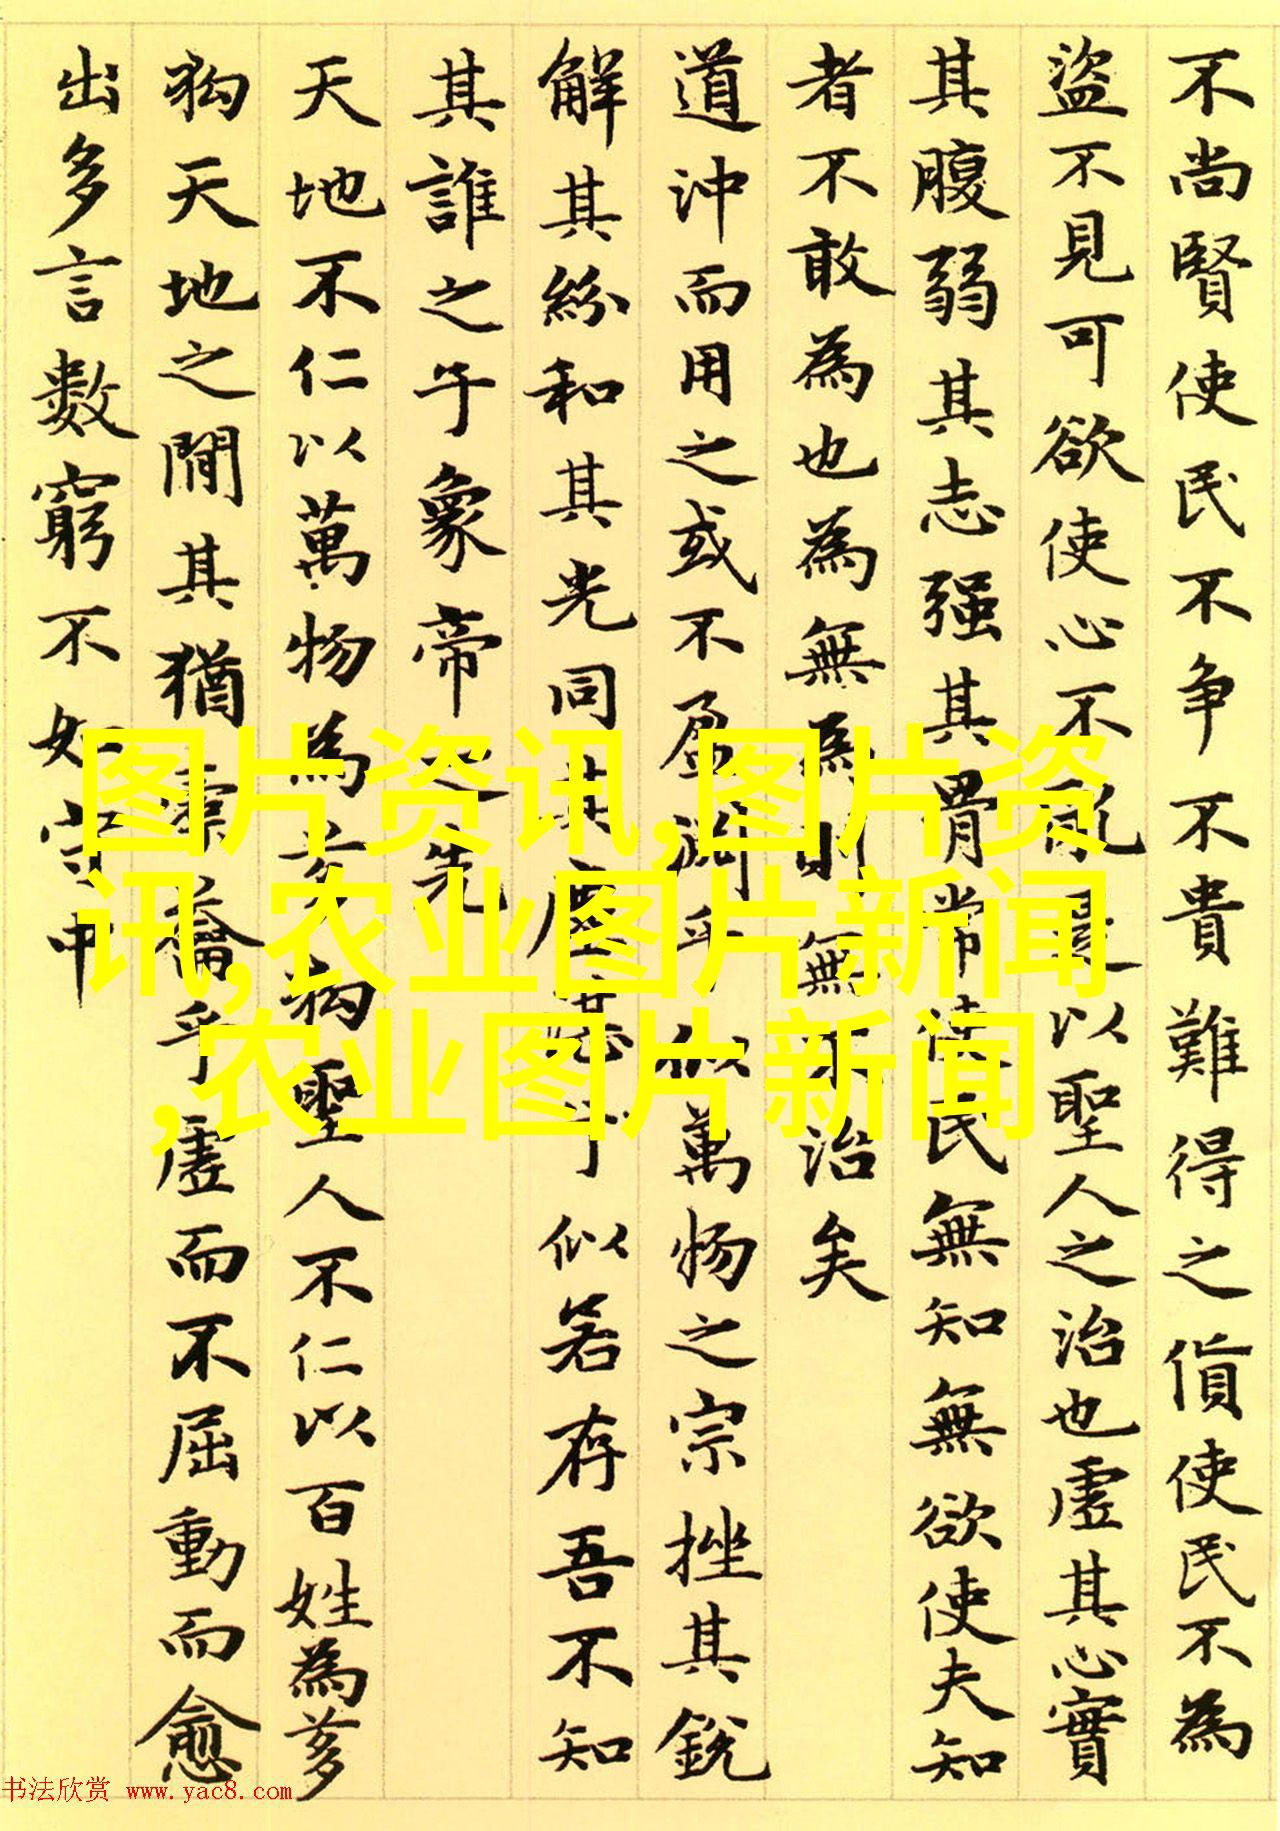 不尚賢使民不争不貴難得之貨使民不為
盜不見可欲使心不亂是以聖人之治也虛其心實
其腹弱其志强其骨常使民無知無欲使夫知
者不敢為也為無為則無不治矣
道沖而用之或不盈淵乎似萬物之宗挫其銳
解其紛和其光同其塵湛乎似若存吾不知
其誰之子象帝之先
天地不仁以萬物為芻狗聖人不仁以百姓為芻
狗天地之間其猶橐籥乎虛而不屈動而愈
出多言數窮不如守中
图片资讯,图片资
讯,农业图片新闻
,农业图片新闻
书法欣赏 www.yac8.com